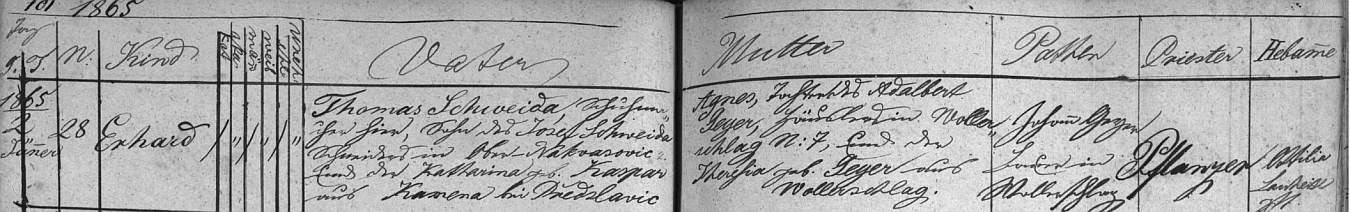 1865
Tag
g. T. N: Kind Vater Mutter Pathen Priester Hebame
1865
2
Jäner
28 Erhard
Thomas Schweida, Schuhma
cher hier, Sohn des Josef Schweida
Schneiders in Ober-Nakvasovic
und der Katharina geb. Kaspar
aus Kamena bei Předslavic
Agnes, Tochter des Adalbert
Feyer, Häuslers in Woller
schlag N: 7, und der
Theresia geb. Feyer aus
Wollerschlag.
Johann Geyer
Bauer in
Wollerschlag
Pflanzer
Ottilia